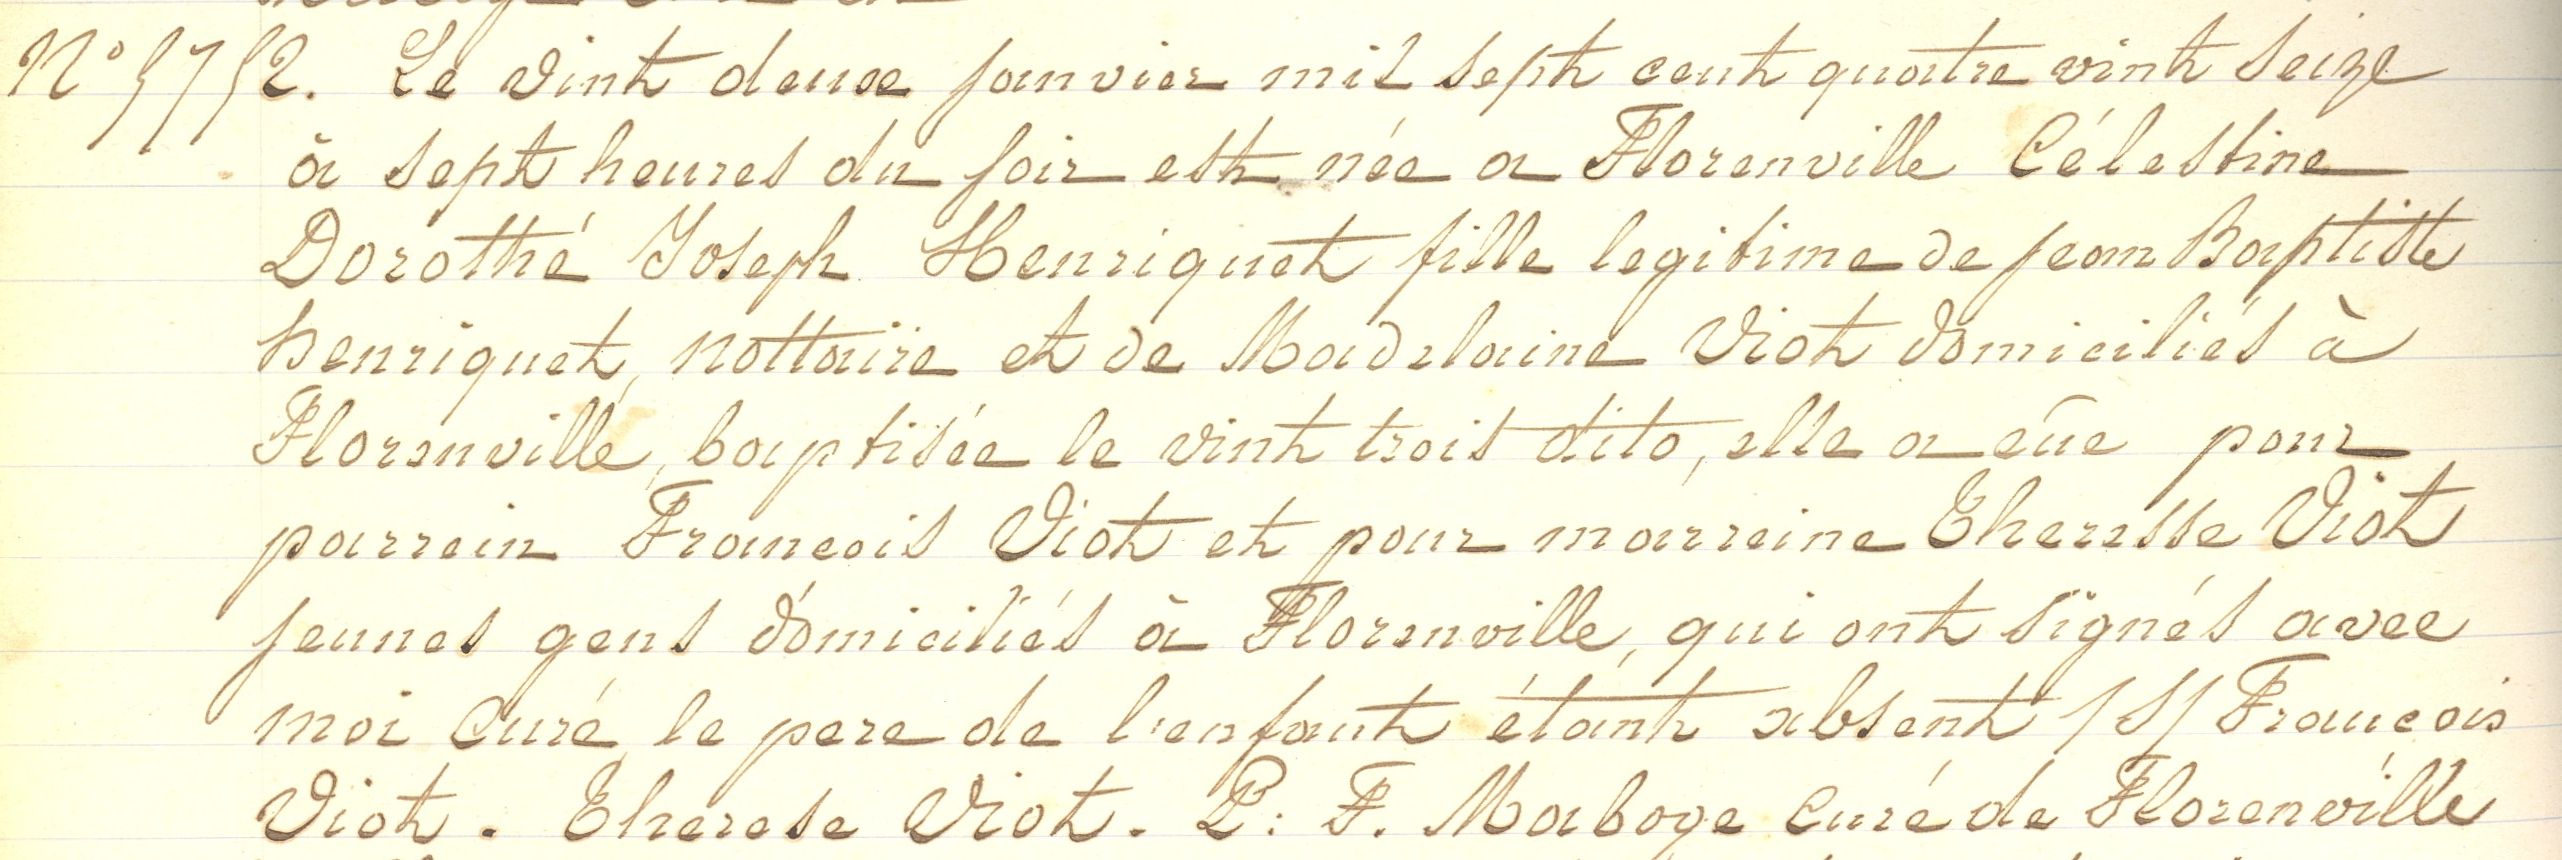 N° 5752. Le vint deux janvier mil sept cent quatre vint seize
à sept heures du soir est née a Florenville Célestine
Dorothé Joseph Henriquet fille legitime de jean Baptiste
henriquet, nottaire et de Madelaine Viot domiciliés à
Florenville, baptisée le vint trois dito, elle a eûe pour
parrein Francois Viot et pour marreine Theresse Viot
jeunes gens domiciliés à Florenville, qui ont signés avec
moi curé, le pere de l'enfant étant absent /S/ Francois
Viot. Therese Viot. P: F. Maboge curé de Florenville